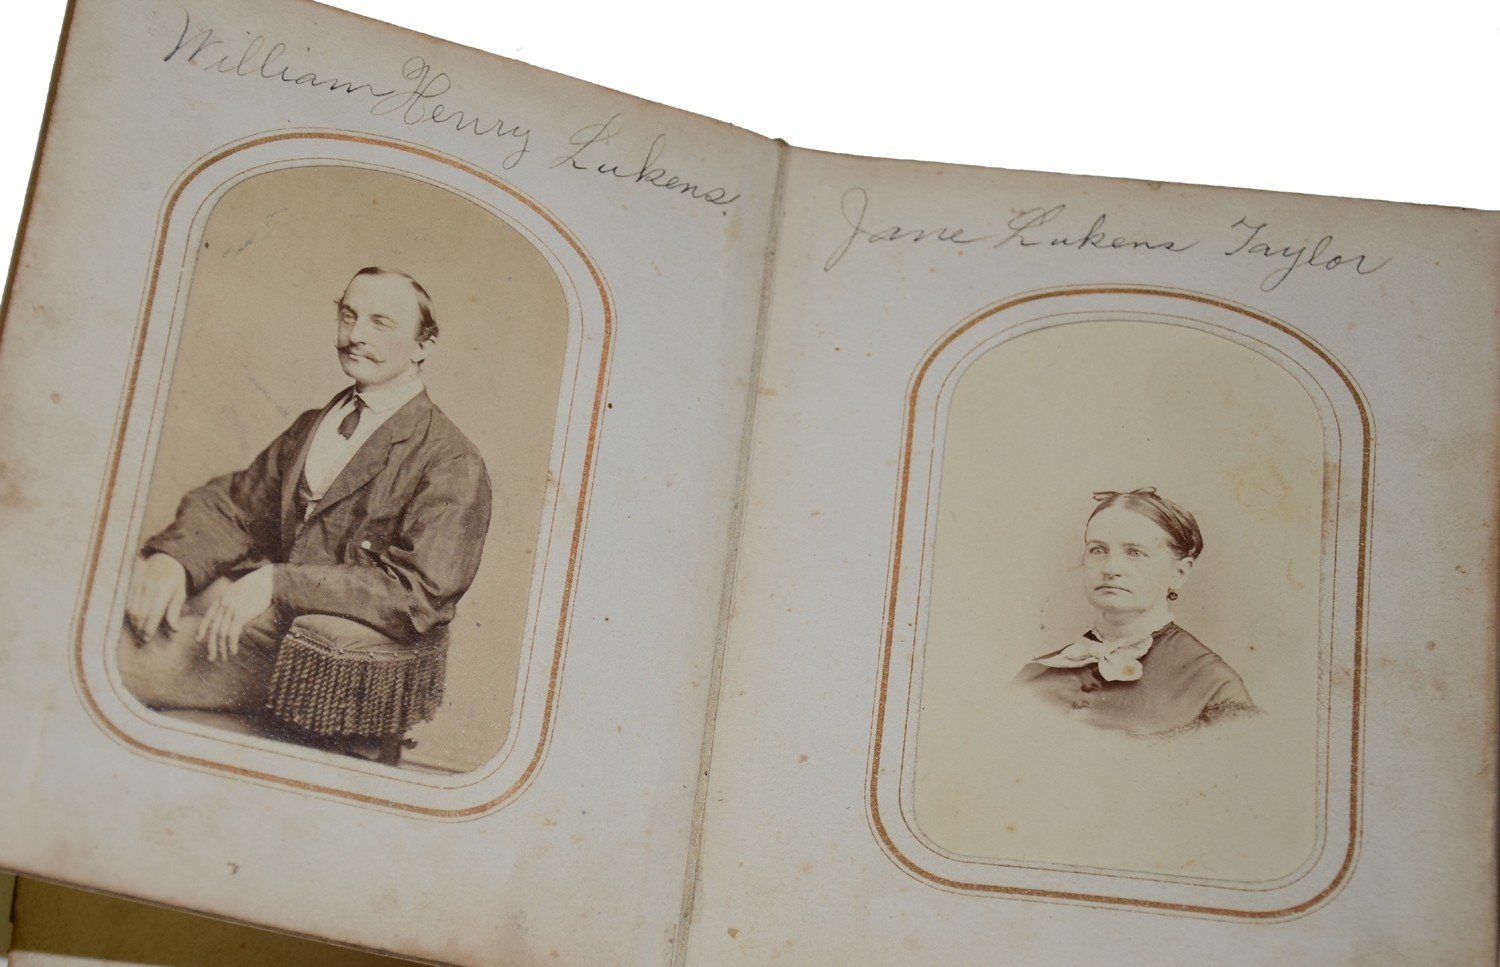 William Henry Lukens.
Jane Lukens Taylor